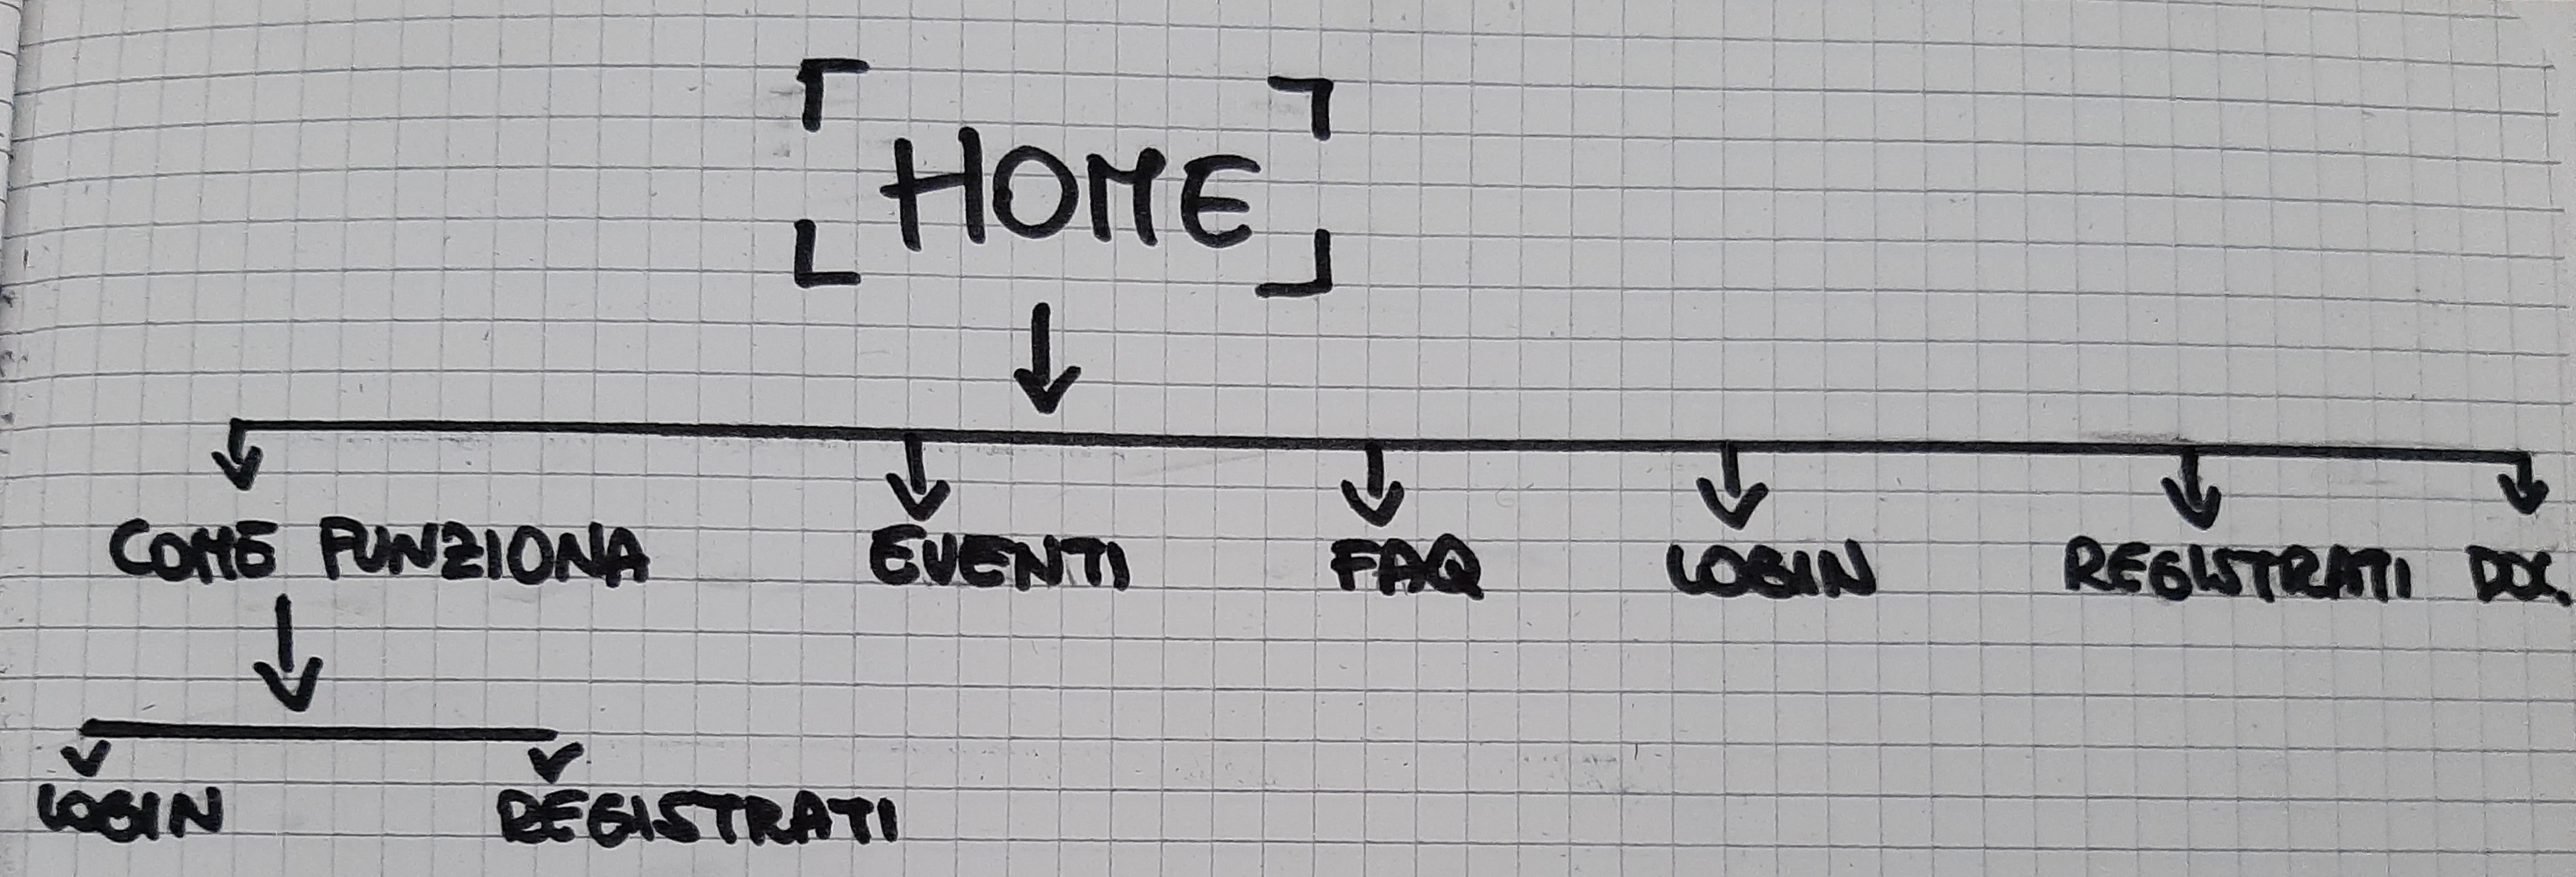 HOME
COME FUNZIONA EVENTI FAQ LOGIN REGISTRATI DOC.
LOGIN REGISTRATI